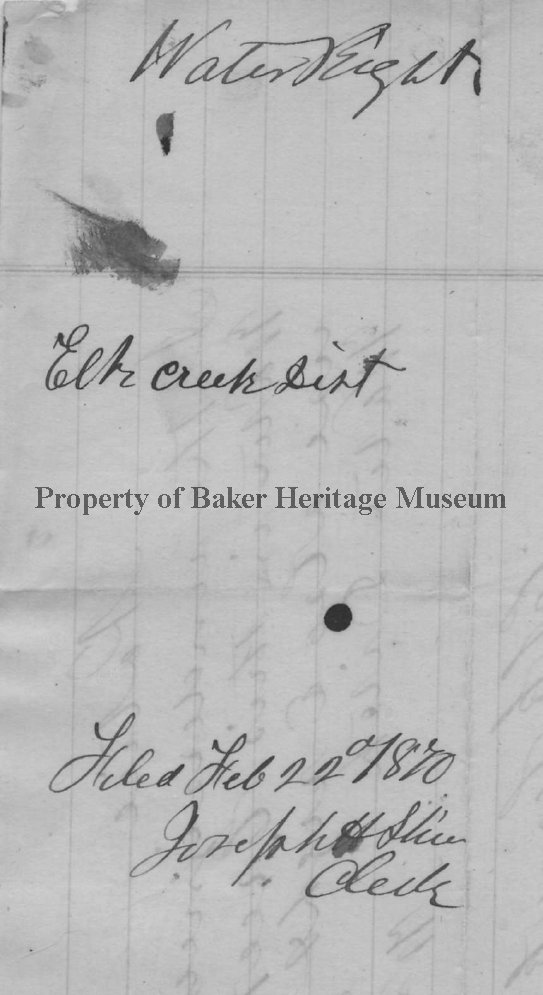 Water Right
Elk creek Dist
Property of Baker Heritage Museum
Filed Feb 22d 1870
Joseph H Shinn
Clerk